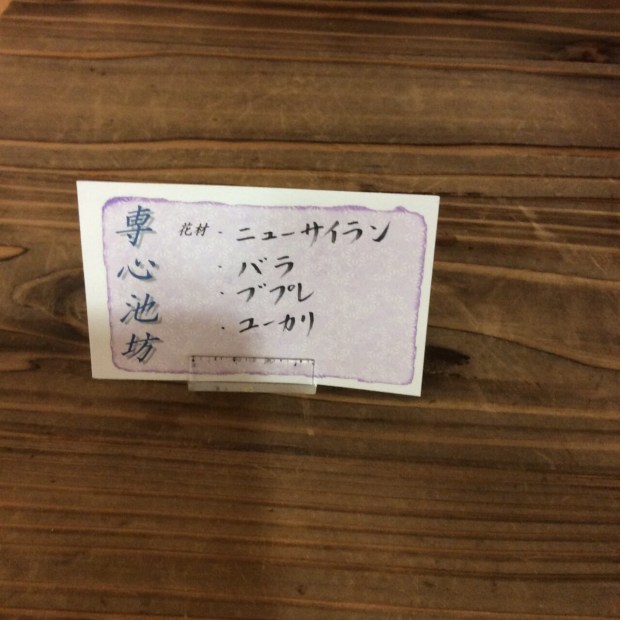 専心池坊
花材 ・ ニューサイラン
・ バラ
・ ブプレ
・ ユーカリ